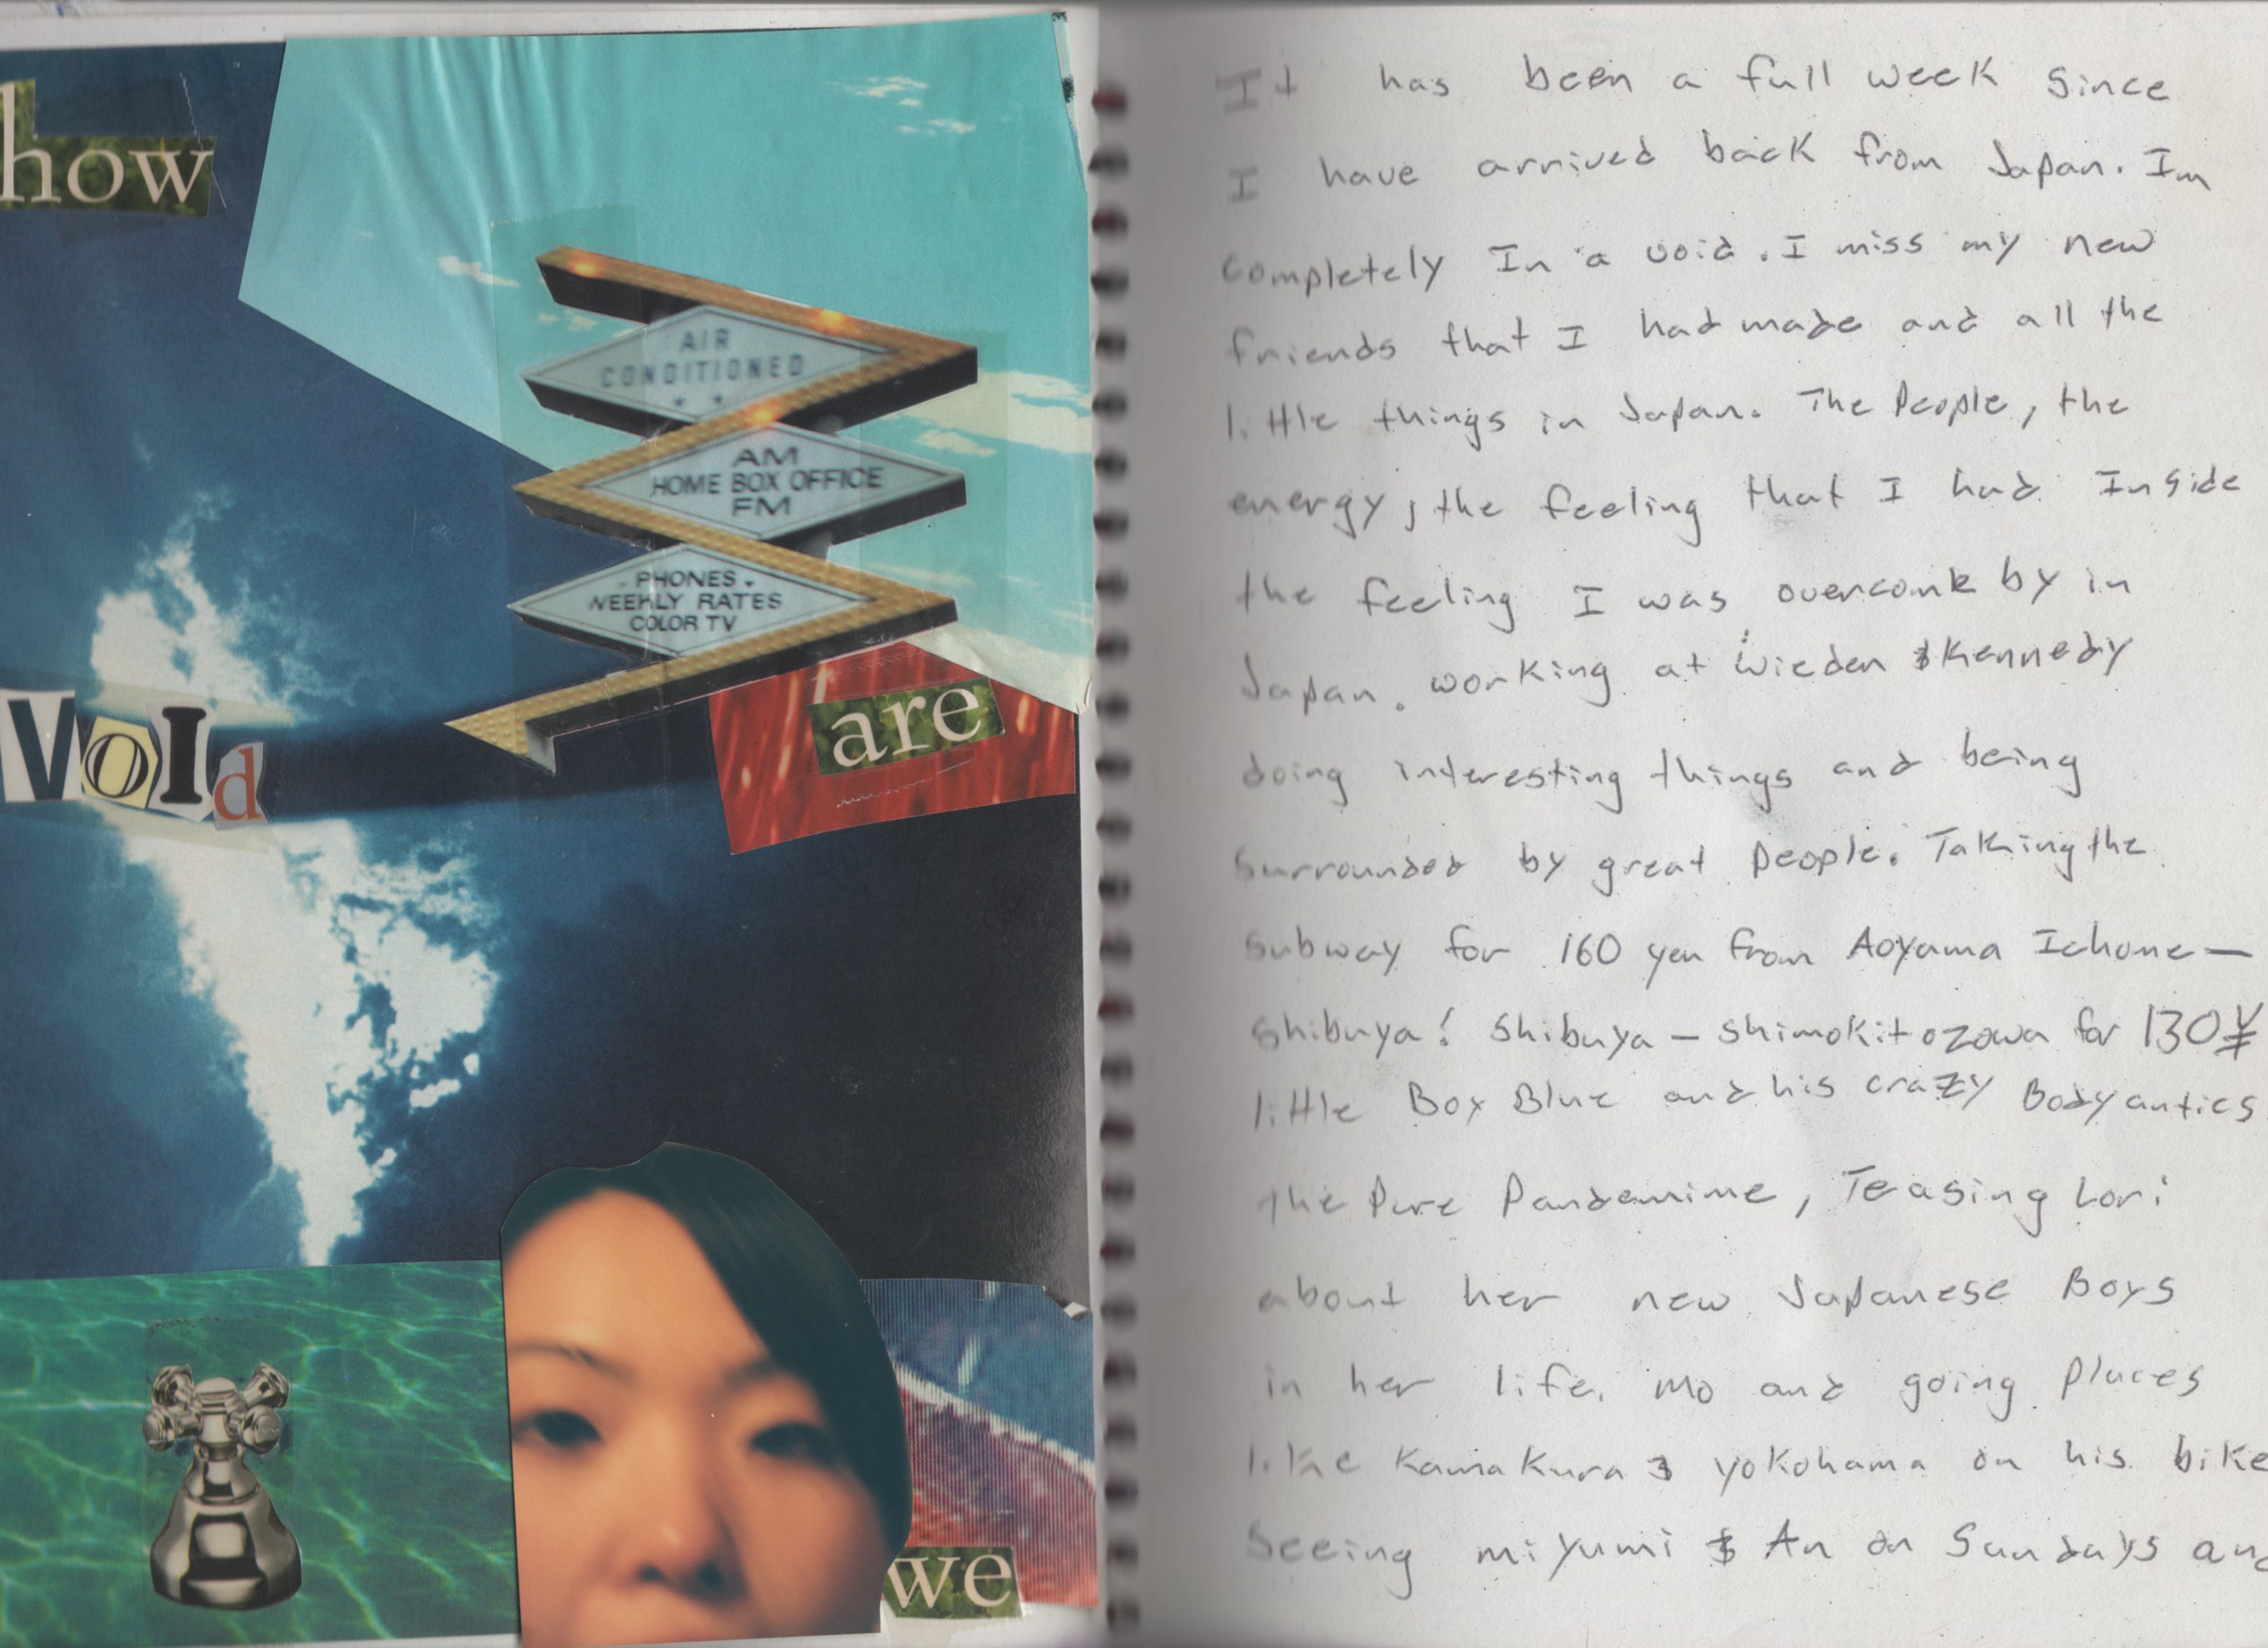 how
AIR
CONDITIONED
AM
HOME BOX OFFICE
FM
- PHONES -
WEEKLY RATES
COLOR TV
VOId
are
we
It has been a full week since
I have arrived back from Japan. Im
completely In a void. I miss my new
friends that I had made and all the
little things in Japan. The People, the
energy, the feeling that I had Inside
the feeling I was overcome by in
Japan. working at Wieden & Kennedy
doing interesting things and being
surrounded by great people. Taking the
subway for 160 yen from Aoyama Ichome —
Shibuya! Shibuya — Shimokitozowa for 130¥
little Box Blue and his crazy Body antics
the Pure Pandemime, Teasing Lori
about her new Japanese Boys
in her life. Mo and going places
like Kamakura & yokohama on his bike
Seeing miyumi & An on Sundays and